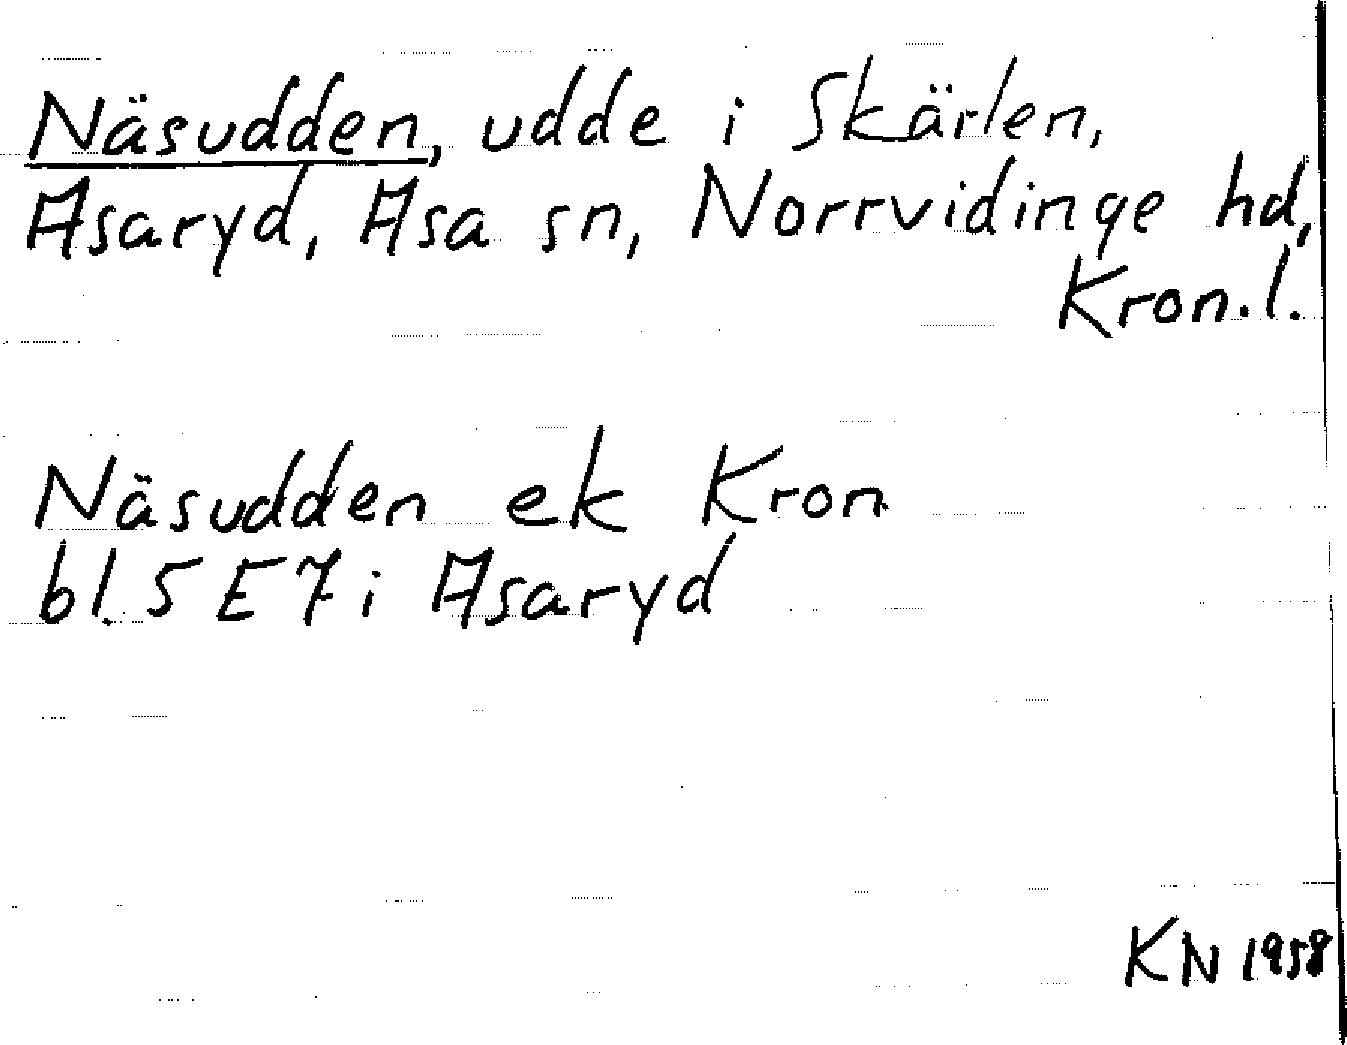 Näsudden, udde i Skärlen,
Asaryd, Asa sn, Norrvidinge hd,
Kron.l.
Näsudden ek Kron
bl. 5 E 7 i Asaryd
KN 1958